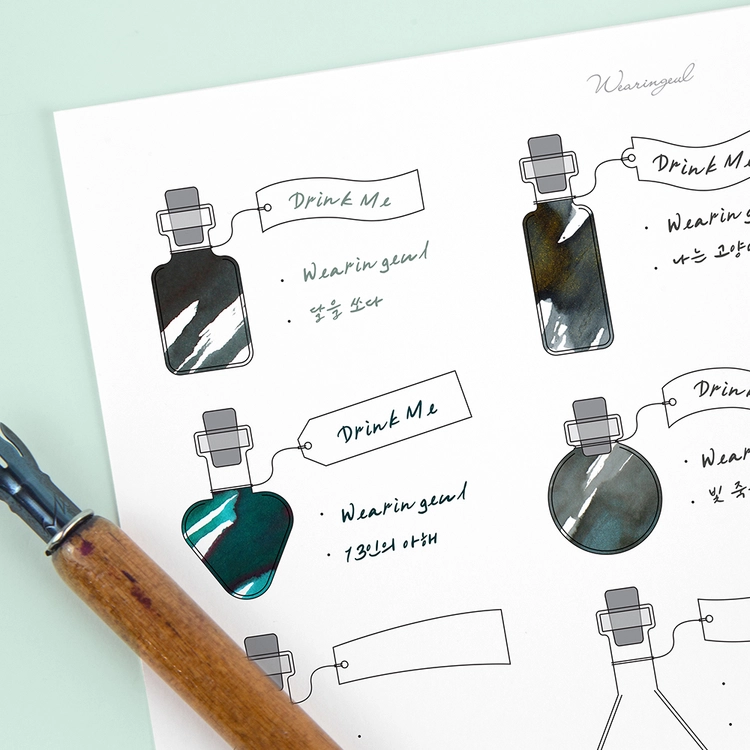 Wearingeul
Drink Me
Wearingeul
달을 쏘다
Drink Me
Wearing
나는 고양
Drink Me
Wearingeul
13인의 아해
Drink
Wear
빛 죽